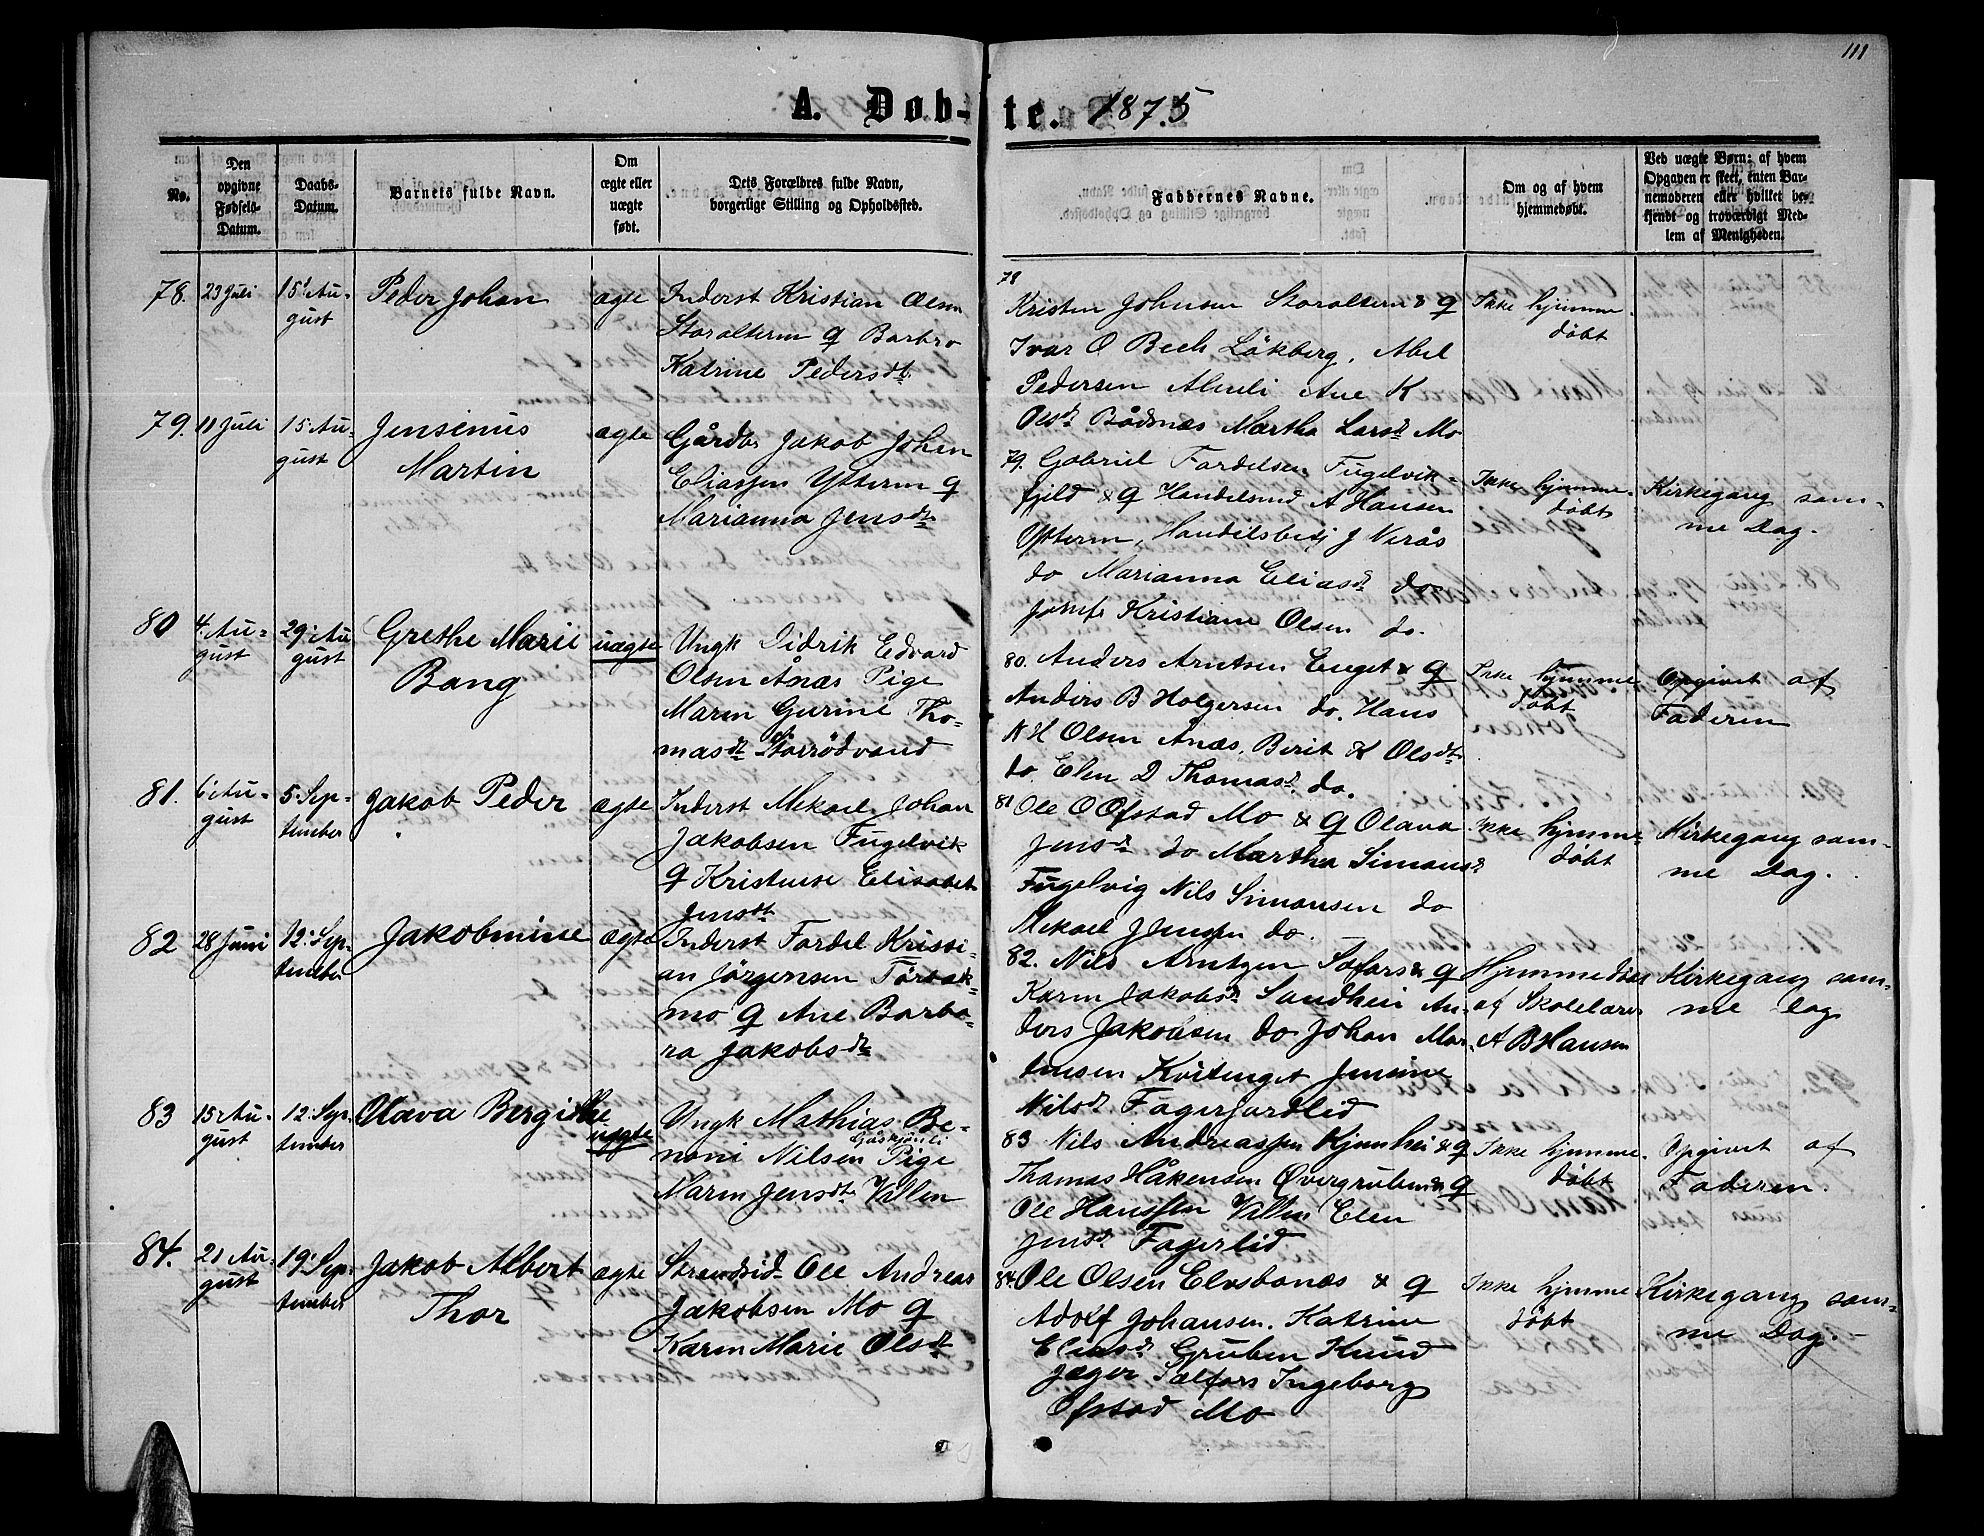 111
A. Døb-te. 1875
No.
Den
opgivne
Fødsels-
Datum.
Daabs-
Datum.
Barnets fulde Navn.
Om
ægte eller
uægte
født.
Dets Forældres fulde Navn,
borgerlige Stilling og Opholdssted.
Faddernes Navne.
Om og af hvem
hjemmedøbt.
Ved uægte Børn: af hvem
Opgaven er skeet, enten Bar-
nemoderen eller hvilket be-
kjendt og troværdigt Med-
lem af Menigheden.
78. 23 Juli
15 Au-
gust
Peder Johan
ægte
Inderst Kristian Olsen
Storalteren &
Barbro
Katrine Pedersdt
78
Kristen Johnsen Storalteren & Q
Ivar O Bech Låkberg, Abel
Pedersen Alterli Ane K
Olsdt Bådsnæs Martha Larsdt Mo
Ikke hjemme-
døbt
79. 11 Juli
15. Au-
gust
Jensenius
Martin
ægte
Gårdbr Jakob Johan
Eliassen Ytteren Q
Marianna Jensdt
79. Gabriel Fardelsen Fugelvik-
fjeld & Q Handelsmd A Hansen
Ytteren, Handelsbetj J Nerås
do Marianna Eliasdt do
Josefe Kristiane Olsen do.
Ikke hjemme-
døbt
Kirkegang sam-
me Dag.
80 4. Au-
gust
29. Au
gust
Grethe Marie
Bang
uægte
Ungk Didrik Edvard
Olsen Ånæs Pige
Maren Gurine Tho-
masdt Storrødvand
80. Anders Arntsen Enget & Q
Anders B Holgersen do. Hans
N H Olsen Ånæs, Berit K Olsdt
do, Elen D Thomasdt do.
Ikke hjemme
døbt
Opgivet af
Faderen
81. 6 Au-
gust
5. Sep-
tember
Jakob Peder
ægte
Inderst Mekael Johan
Jakobsen Fugelvik
Q Kristense Elisabet
Jensdt
81 Ole O Øfstad Mo & Q Olava
Jensdt do Martha Simonsdt
Fugelvig Nils Simonsen do
Mekael J Jensen do.
Ikke hjemme-
døbt
Kirkegang sam-
me Dag.
82 28 Juni
12. Sep-
tember
Jakobmine
ægte
Inderst Fardel Kristi-
an Jørgensen Tørbak-
mo Q Ane Barba-
ra Jakobsdt
82. Nils Arntzen Selfors & Q
Karen Jakobsdt Sandhei An-
ders Jakobsen do Johan Mor-
tensen Kvitenget Jensine
Nilsdt Fagerjordlid
Hjemmedøbt
af Skolelærer
A B Hansen
Kirkegang sam-
me Dag
83 15 Au-
gust
12. Sep-
tember
Olava Bergithe
uægte
Ungk Mathias Be-
noni Nilsen Pige
Maren Jensdt Vallen
83 Nils Andreassen Hjemhei & Q
Thomas Håkensen Øvergruben & Q
Ole Hanssen Vallen Elen
Jensdt Fagerlid
Ikke hjemme-
døbt
Opgivet af
Faderen.
84. 21 Au-
gust
19. Sep-
tember
Jakob Albert
Thor
ægte
Strandsid. Ole Andreas
Jakobsen Mo Q
Karen Marie Olsdt
84. Ole Olsen Elvsbanæs & Q
Adolf Johansen, Katrine
Eliasdt Gruben Knud
Jæger Selfors Ingeborg
Øfstad Mo
Ikke hjemme
døbt
Kirkegang sam-
me Dag.-